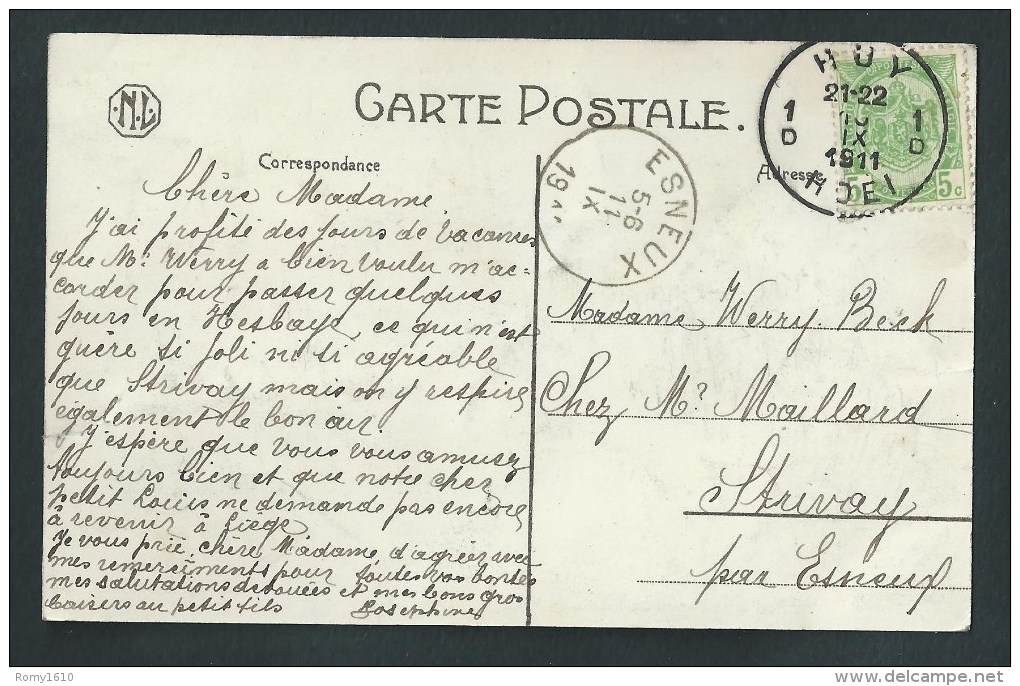 N.L
CARTE POSTALE.
Correspondance
Adresse
HUY
21-22
10
IX
1911
HOEI
1
D
1
D
5c
ESNEUX
5-6
11
IX
19
Chère Madame
J'ai profité des jours de vacances
que Mr. Werry a bien voulu m'ac=
corder pour passer quelques
jours en Hesbaye, ce qui n'est
guère si joli ni si agréable
que Strivay mais on y respire
également le bon air
J'espère que vous vous amusez
toujours bien et que notre cher
petit Louis ne demande pas encore
à revenir à Liège
Je vous prie, chère Madame, d'agréer avec
mes remerciments pour toutes vos bontés
mes salutations dévouées et mes bons gros
baisers au petit fils Joséphine
Madame Werry-Beck
Chez Mr. Maillard
Strivay
par Esneux
Romy1610
delcampe.net